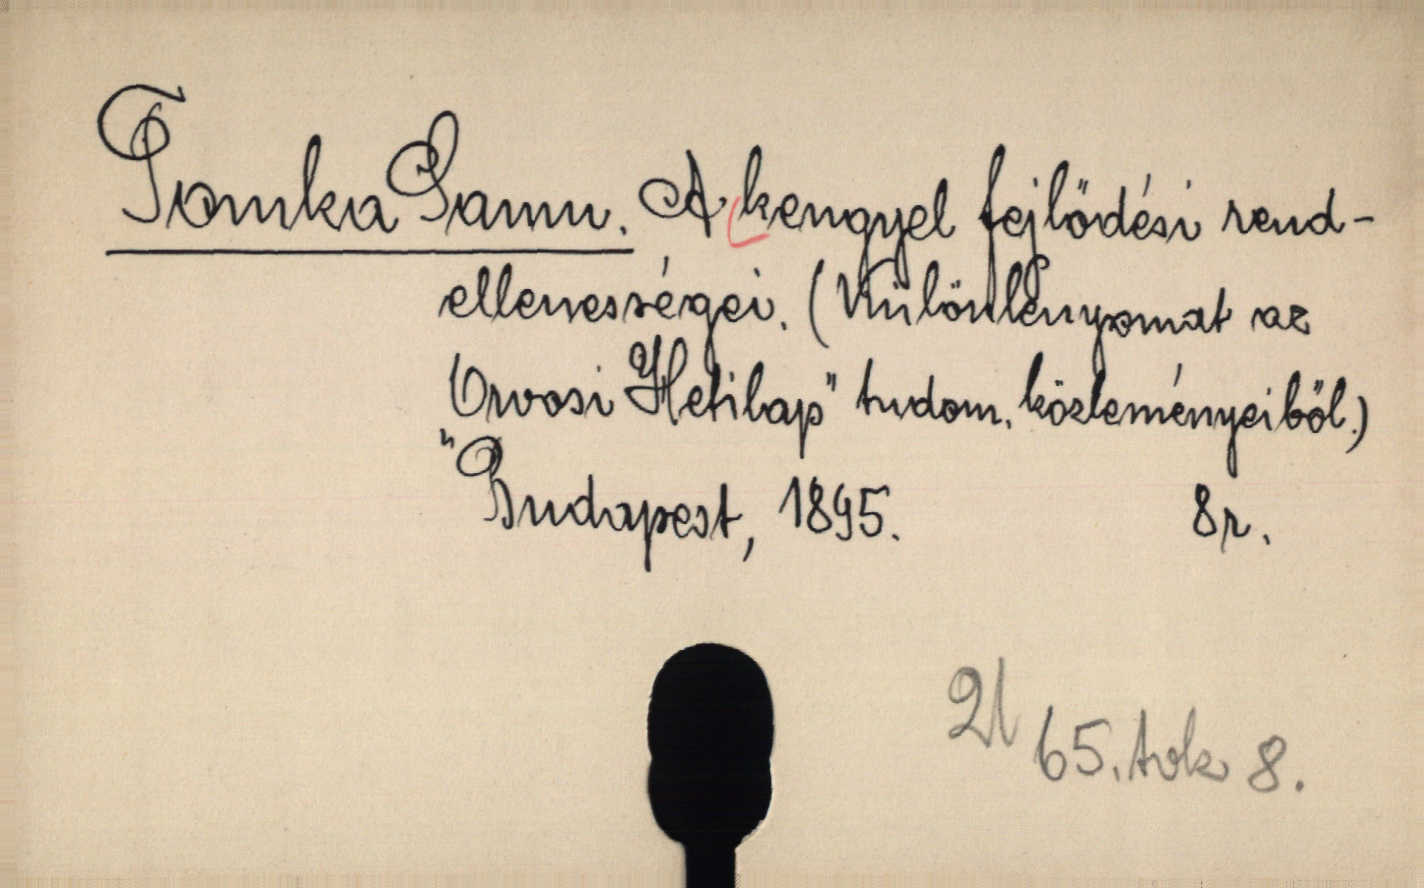 Tomka Samu. A kengyel fejlődési rend-
ellenességei. (Különlenyomat az
Orvosi Hetilap" tudom. közleményeiből.)
"Budapest, 1895. 8r.
21 65. tok 8.